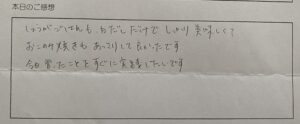 本日のご感想
しょうがごはんも、おだしだけで しっかり美味しくて
おこのみ焼きも あっさりして良かったです
今日習ったことをすぐに実践したいです